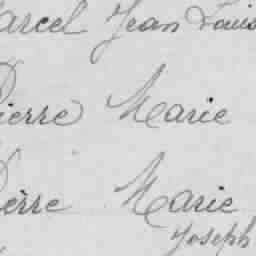 Marcel Jean Louis
Pierre Marie
Pièrre Marie
Joseph